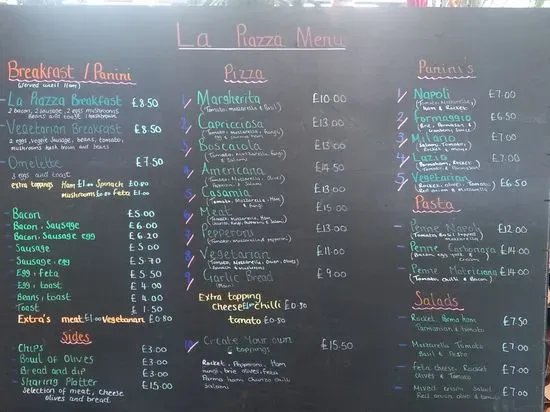 La Piazza Menu
Breakfast / Panini
(served until 11am)
La Piazza Breakfast £8.50
2 bacon, 2 sausage, 2 eggs mushrooms
Beans and toast
Vegetarian Breakfast £8.50
2 eggs, veggie sausage, beans, tomato,
mushrooms hash brown and toast
Omelette £7.50
3 eggs and toast
extra toppings Ham £1.00 Spinach £0.80
mushrooms £0.80 feta £1.00
- Bacon £5.00
- Bacon, Sausage £6.00
- Bacon, Sausage egg £6.20
- Sausage £5.00
- Sausage, egg £5.70
- Egg, feta £5.50
- Egg, toast £4.00
- Beans, toast £4.00
- Toast £1.50
Extra's meat £1.00 vegetarian £0.80
Sides
- Chips £3.00
- Bowl of Olives £3.00
- Bread and dip £3.00
- Sharing Platter £15.00
Selection of meat, cheese
olives and bread.
Pizza
1 Margherita £10.00
(Tomato, mozzarella & basil)
2 Capricciosa £13.00
(Tomato, mozzarella, fungi
3 Boscaiola £13.00
(Tomato, mozzarella, fungi
& Salami)
4 Americana £14.50
(Tomato, mozzarella,
5 Casamia £13.50
(Tomato, Mozzarella
& Ham)
6 Meat £15.00
(Tomato, mozzarella, Ham
7 Pepperoni £13.00
(Tomato, mozzarella & pepperoni)
8 Vegetarian £11.00
(Tomato & Mozzarella, Onion, olives
& mushrooms)
9 Garlic Bread £9.00
(Plain)
Extra topping
cheese £1 chilli £0.50
tomato £0.50
10 Create Your own £15.50
5 toppings
Rocket, Pepperoni, Ham
brie, olives, feta
Parma ham, chorizo chilli
salami
Panini's
1 Napoli £7.00
(Tomato, Mozzarella,
Ham & Rocket)
2 Formaggio £6.50
(Brie, Parmesan &
Cranberry Sauce)
3 Milano £7.00
(Salami, Tomato,
Rocket &
4 Lazio £7.00
(Parmaham,
Rocket & Tomato)
5 Vegetarian £6.50
(Rocket, olives, Tomato
Pasta
- Penne Napoli £12.00
(Tomato, Basil topped
mozzarella)
- Penne Carbonara £14.00
(Bacon, egg yolk &
- Penne Matriciana £14.00
(Tomato, chilli & Bacon)
Salads
- Rocket, Parma ham £7.50
Parmesan & tomato
- Mozzarella Tomato £7.50
Basil & Pesto
- Feta cheese, Rocket £7.50
Olives & Tomato
- Mixed crispy Salad £7.50
Red onion, olive & tomato